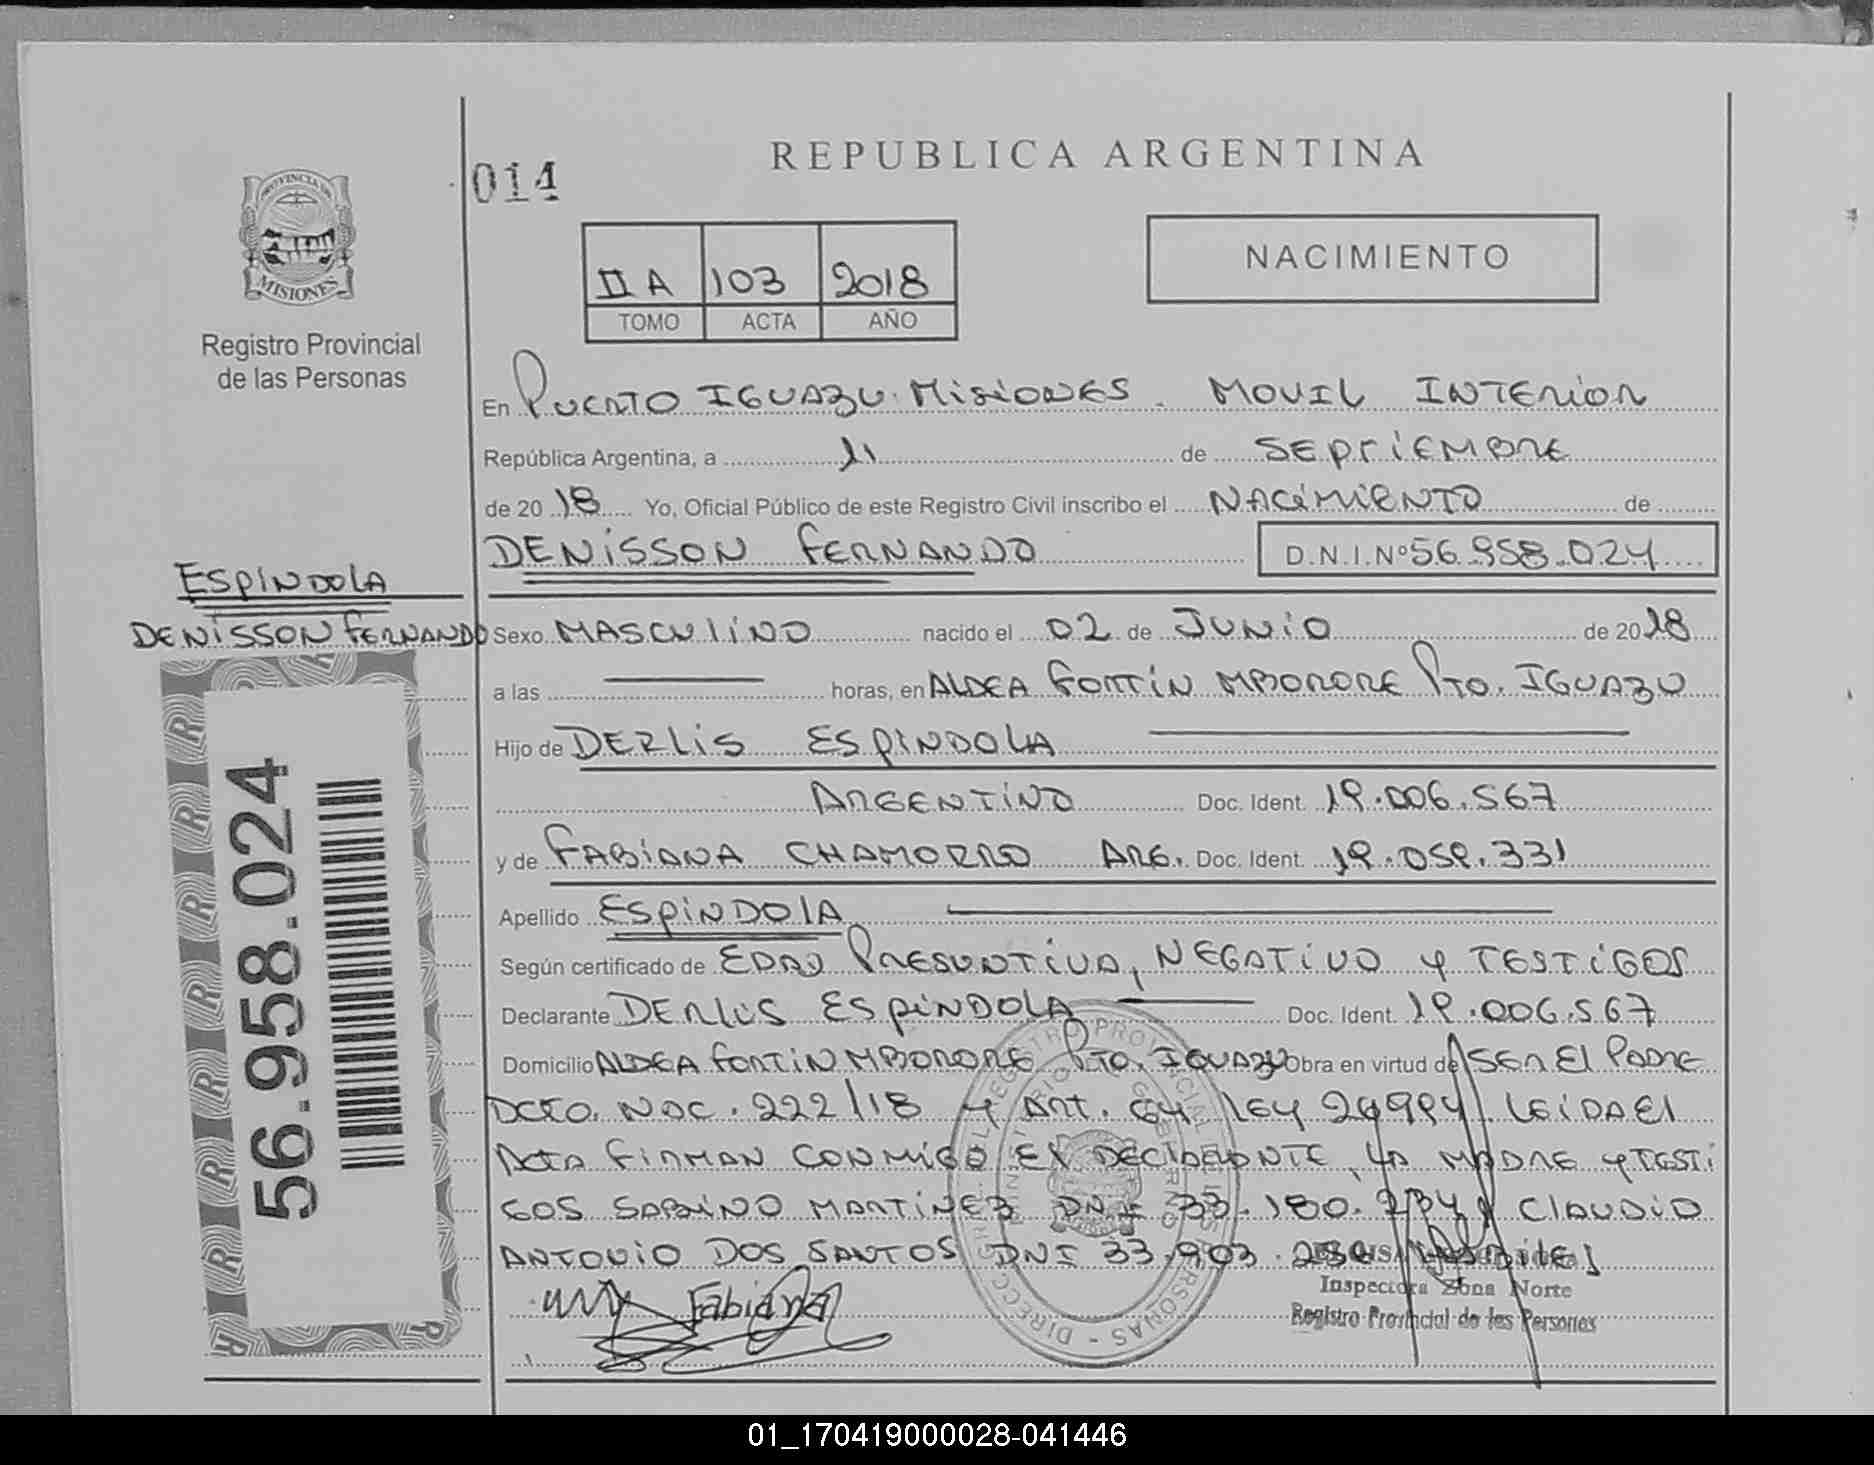 REPUBLICA ARGENTINA
014
PROVINCIA DE
MISIONES
Registro Provincial
de las Personas
II A 103 2018
TOMO ACTA AÑO
NACIMIENTO
En PUERTO IGUAZU. MISIONES. MOVIL INTERIOR
República Argentina, a 11 de SEPTIEMBRE
de 2018 Yo, Oficial Público de este Registro Civil inscribo el NACIMIENTO de
DENISSON FERNANDO D.N.I.Nº 56.958.024
ESPINDOLA
DENISSON FERNANDO
Sexo MASCULINO nacido el 02 de JUNIO de 2018
a las horas, en ALDEA FORTIN MBORORE PTO. IGUAZU
Hijo de DERLIS ESPINDOLA
ARGENTINO Doc. Ident. 19.006.567
y de FABIANA CHAMORRO ARG. Doc. Ident. 19.059.331
Apellido ESPINDOLA
Según certificado de EDAD PRESUNTIVA, NEGATIVO Y TESTIGOS
Declarante DERLIS ESPINDOLA Doc. Ident. 19.006.567
Domicilio ALDEA FORTIN MBORORE PTO. IGUAZU Obra en virtud de SER EL PADRE
DCTO. NAC. 222/18 Y ART. 64 LEY 26994 LEIDA EL
ACTA FIRMAN CONMIGO EL DECLARANTE, LA MADRE Y TESTI
GOS SABINO MARTINEZ DNI 33.180.234 Y CLAUDIO
ANTONIO DOS SANTOS DNI 33.903.
Fabiana
Inspectora Zona Norte
Registro Provincial de las Personas
56.958.024
01_170419000028-041446